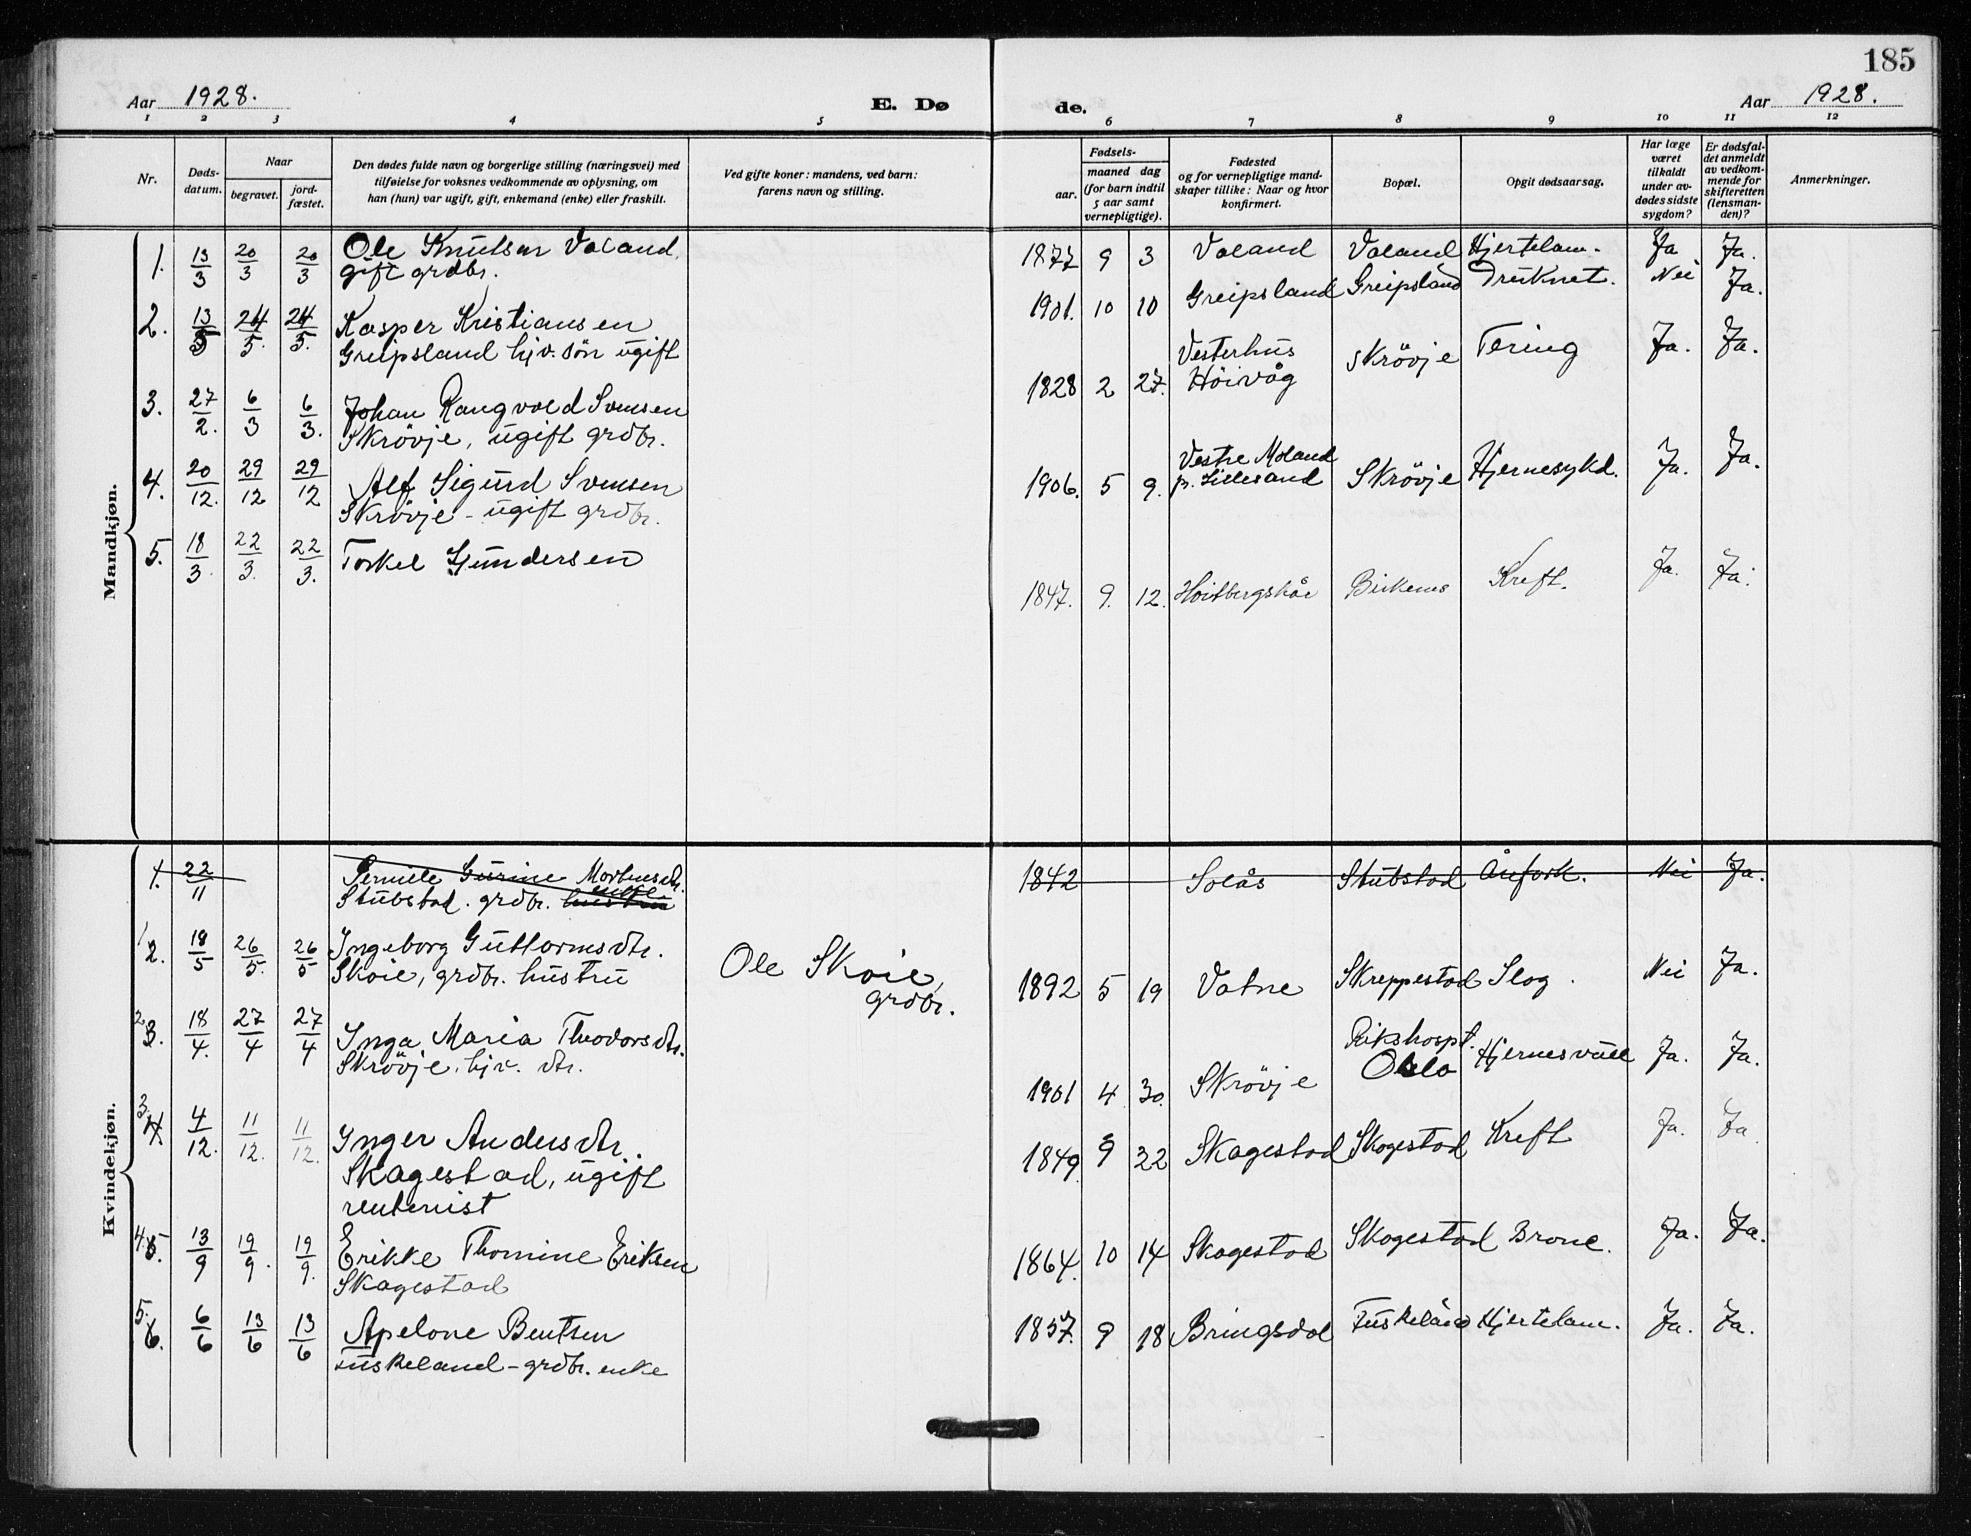 185
Aar 1928.
E. Dø
de.
Aar 1928.
1 2 3 4 5 6 7 8 9 10 11 12
Nr.
Døds-
datum.
Naar
begravet.
jord-
fæstet.
Den dødes fulde navn og borgerlige stilling (næringsvei) med
tilføielse for voksnes vedkommende av oplysning, om
han (hun) var ugift, gift, enkemand (enke) eller fraskilt.
Ved gifte koner: mandens, ved barn:
farens navn og stilling.
Fødsels-
aar.
maaned dag
(for barn indtil
5 aar samt
vernepligtige).
Fødested
og for vernepligtige mand-
skaper tillike: Naar og hvor
konfirmert.
Bopæl.
Opgit dødsaarsag.
Har læge
været
tilkaldt
under av-
dødes sidste
sygdom?
Er dødsfal-
det anmeldt
av vedkom-
mende for
skifteretten
(lensman-
den)?
Anmerkninger.
Mandkjøn.
1. 13/3 20/3 20/3 Ole Knutsen Valand, 1877 9 3 Valand Valand Hjertelam. Ja Ja.
gift grdbr.
2. 13/5 24/5. 24/5. Kasper Kristiansen 1901. 10 10 Greipsland Greipsland Druknet. Nei Ja.
Greipsland hjv. søn ugift
3. 27/2. 6/3 6/3. Johan Rangvald Svensen 1828 2 27. Vesterhus Skrövje Tering Ja. Ja.
Höivåg
Skrövje, ugift grdbr.
4. 20/12. 29/12 29/12 Alf Sigurd Svensen 1906. 5 9. Vestre Moland Skrövje Hjernesykd. Ja. Ja.
p. Lillesand
Skrövje - ugift grdbr.
5. 18/3. 22/3. 22/3. Torkel Gundersen 1847. 9. 12. Birkenes Kreft. Ja. Ja.
Kvindekjøn.
1. 22/11 Pernille Gurine Mortensdtr. 1842 Solås Stubstad Nei Ja.
Stubstad. grdbr. enke hustru
1 2. 18/5 26/5. 26/5 Ingeborg Guttormsdtr. Ole Skoie, 1892 5 19 Vatne Skreppestad Slag. Nei Ja.
Skoie, grdbr. hustru grdbr.
2 3. 18/4. 27/4 27/4 Inga Maria Theodorsdtr. 1901 4 30. Skrövje Rikshospt. Hjernesvull Ja. Ja.
Oslo
Skrövje. hjv. dtr.
3 4 4/12. 11/12. 11/12. Inger Andersdtr. 1849 9 22 Skagestad Skagestad Kreft Ja. Ja.
Skagestad, ugift
rentenist
4. 5. 13/9 19/9. 19/9. Erikke Thomine Eriksen 1864. 10 14 Skagestad Skagestad Ja. Ja.
Skagestad
5. 6. 6/6 13/6 13/6 Apelone Bentsen 1857. 9 18 Bringsdal Tuskeland Hjertelam. Ja. Ja.
Tuskeland - grdbr. enke